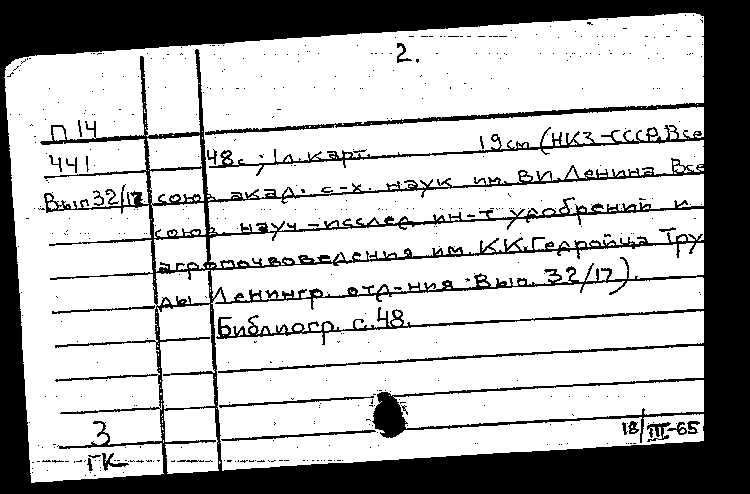 2.
П 14
441 48с; 1л. карт. 19 см (НКЗ-СССР, Все
Вып 32/17 союз. акад. с-х. наук им. В.И. Ленина. Все
союз. науч-исслед. ин-т удобрений и
агропочвоведения им. К.К. Гедройца Тру
ды Ленингр. отд-ния. Вып. 32/17).
Библиогр. с. 48.
3
ГК
18/III-65